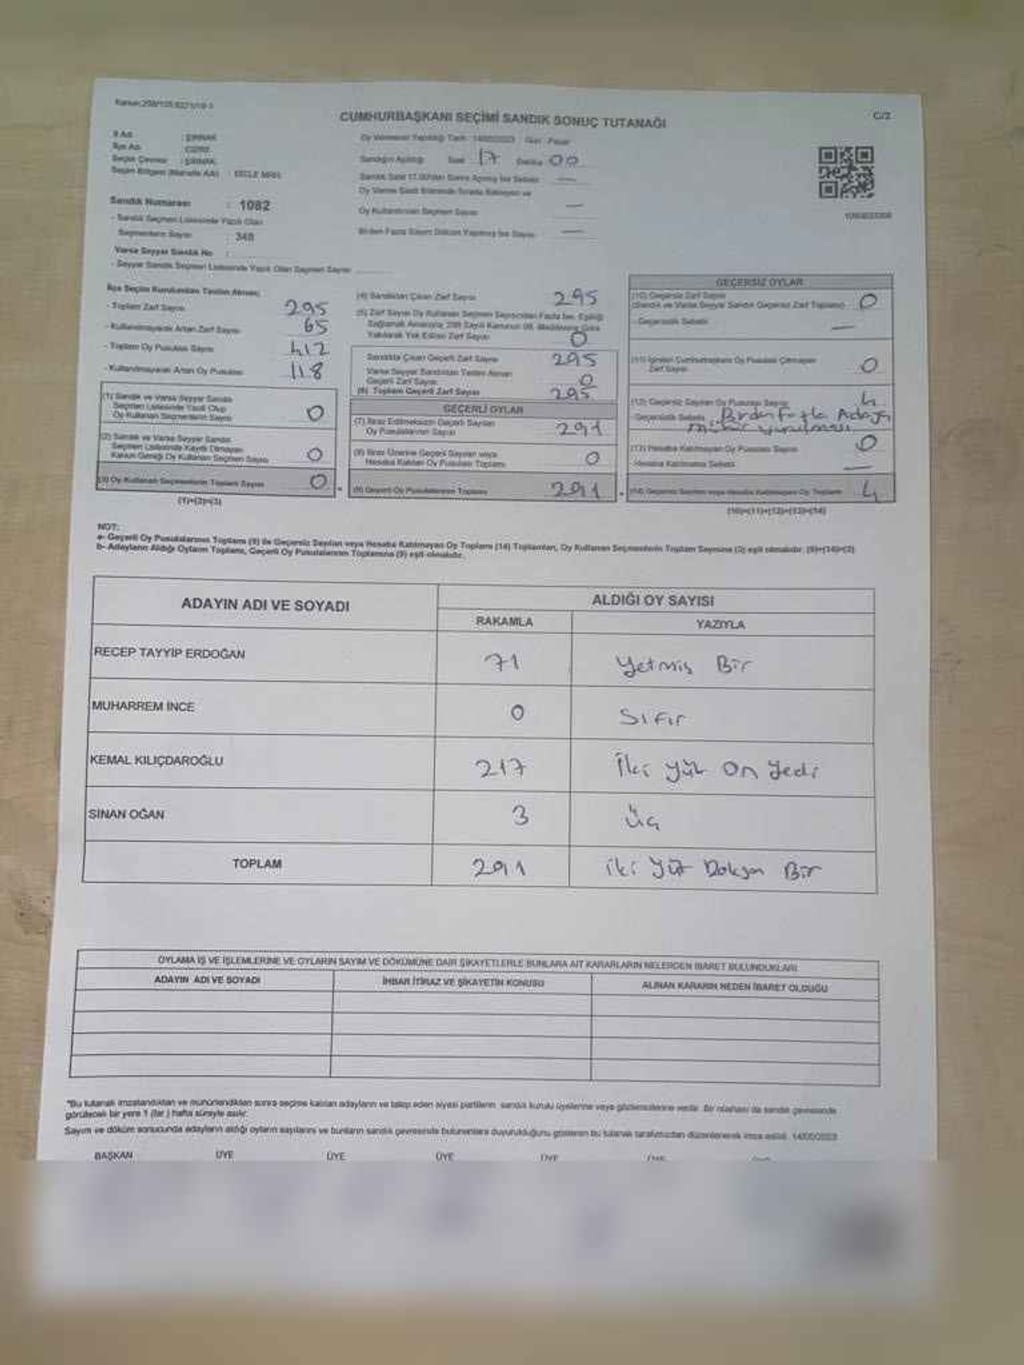 CUMHURBAŞKANI SEÇİMİ SANDIK SONUÇ TUTANAĞI
C/2
İl Adı : ŞIRNAK
İlçe Adı : CİZRE
Seçim Çevresi : ŞIRNAK
Oy Vermenin Yapıldığı Tarih : 14/05/2023 Gün : Pazar
Sandığın Açıldığı Saat 17 Dakika 00
Sandık Numarası : 1082
- Sandık Seçmen Listesinde Yazılı Olan
Seçmenlerin Sayısı : 348
Varsa Seyyar Sandık No :
- Seyyar Sandık Seçmen Listesinde Yazılı Olan Seçmen Sayısı
Oy Kullandırılan Seçmen Sayısı
Birden Fazla Sayım Döküm Yapılmış İse Sayısı
İlçe Seçim Kurulundan Teslim Alınan;
- Toplam Zarf Sayısı 295
- Kullanılmayarak Artan Zarf Sayısı 65
- Toplam Oy Pusulası Sayısı 412
- Kullanılmayarak Artan Oy Pusulası 118
(1) Sandık ve Varsa Seyyar Sandık
Seçmen Listesinde Yazılı Olup
Oy Kullanan Seçmenlerin Sayısı 0
(2) Sandık ve Varsa Seyyar Sandık
Seçmen Listesinde Kayıtlı Olmayan
Kanun Gereği Oy Kullanan Seçmen Sayısı 0
(3) Oy Kullanan Seçmenlerin Toplam Sayısı 0
(1)+(2)=(3)
(4) Sandıktan Çıkan Zarf Sayısı 295
(5) Zarf Sayısı Oy Kullanan Seçmen Sayısından Fazla İse, Eşitliği
Sağlamak Amacıyla, 298 Sayılı Kanunun 98. Maddesine Göre
Yakılarak Yok Edilen Zarf Sayısı 0
Sandıkta Çıkan Geçerli Zarf Sayısı 295
Varsa Seyyar Sandıktan Teslim Alınan
Geçerli Zarf Sayısı 0
(6) Toplam Geçerli Zarf Sayısı 295
GEÇERLİ OYLAR
(7) İtiraz Edilmeksizin Geçerli Sayılan
Oy Pusulalarının Sayısı 291
(8) İtiraz Üzerine Geçerli Sayılan veya
Hesaba Katılan Oy Pusulası Toplamı 0
(9) Geçerli Oy Pusulalarının Toplamı 291
GEÇERSİZ OYLAR
(10) Geçersiz Zarf Sayısı
(Sandık ve Varsa Seyyar Sandık Geçersiz Zarf Toplamı) 0
- Geçersizlik Sebebi
(11) İçinden Cumhurbaşkanı Oy Pusulası Çıkmayan
Zarf Sayısı 0
(12) Geçersiz Sayılan Oy Pusulası Sayısı 4
- Geçersizlik Sebebi Birden Fazla Adaya
mühür vurulması
(13) Hesaba Katılmayan Oy Pusulası Sayısı 0
- Hesaba Katılmama Sebebi
(14) Geçersiz Sayılan veya Hesaba Katılmayan Oy Toplamı 4
(10)+(11)+(12)+(13)=(14)
NOT:
a- Geçerli Oy Pusulalarının Toplamı (9) ile Geçersiz Sayılan veya Hesaba Katılmayan Oy Toplamı (14) Toplamları, Oy Kullanan Seçmenlerin Toplam Sayısına (3) eşit olmalıdır. (9)+(14)=(3)
b- Adayların Aldığı Oyların Toplamı, Geçerli Oy Pusulalarının Toplamına (9) eşit olmalıdır.
ADAYIN ADI VE SOYADI
ALDIĞI OY SAYISI
RAKAMLA YAZIYLA
RECEP TAYYİP ERDOĞAN 71 Yetmiş Bir
MUHARREM İNCE 0 Sıfır
KEMAL KILIÇDAROĞLU 217 İki yüz on yedi
SİNAN OĞAN 3 Üç
TOPLAM 291 iki yüz Doksan Bir
OYLAMA İŞ VE İŞLEMLERİNE VE OYLARIN SAYIM VE DÖKÜMÜNE DAİR ŞİKAYETLERLE BUNLARA AİT KARARLARIN NELERDEN İBARET BULUNDUKLARI
ADAYIN ADI VE SOYADI İHBAR İTİRAZ VE ŞİKAYETİN KONUSU ALINAN KARARIN NEDEN İBARET OLDUĞU
"Bu tutanak imzalandıktan ve mühürlendikten sonra seçime katılan adayların ve talep eden siyasi partilerin sandık kurulu üyelerine veya gözlemcilerine verilir. Bir nüshası da sandık çevresinde
görülecek bir yere 1 (bir) hafta süreyle asılır.
Sayım ve döküm sonucunda adayların aldığı oyların sayılarını ve bunların sandık çevresinde bulunanlara duyurulduğunu gösteren bu tutanak tarafımızdan düzenlenerek imza edildi. 14/05/2023
BAŞKAN ÜYE ÜYE ÜYE ÜYE